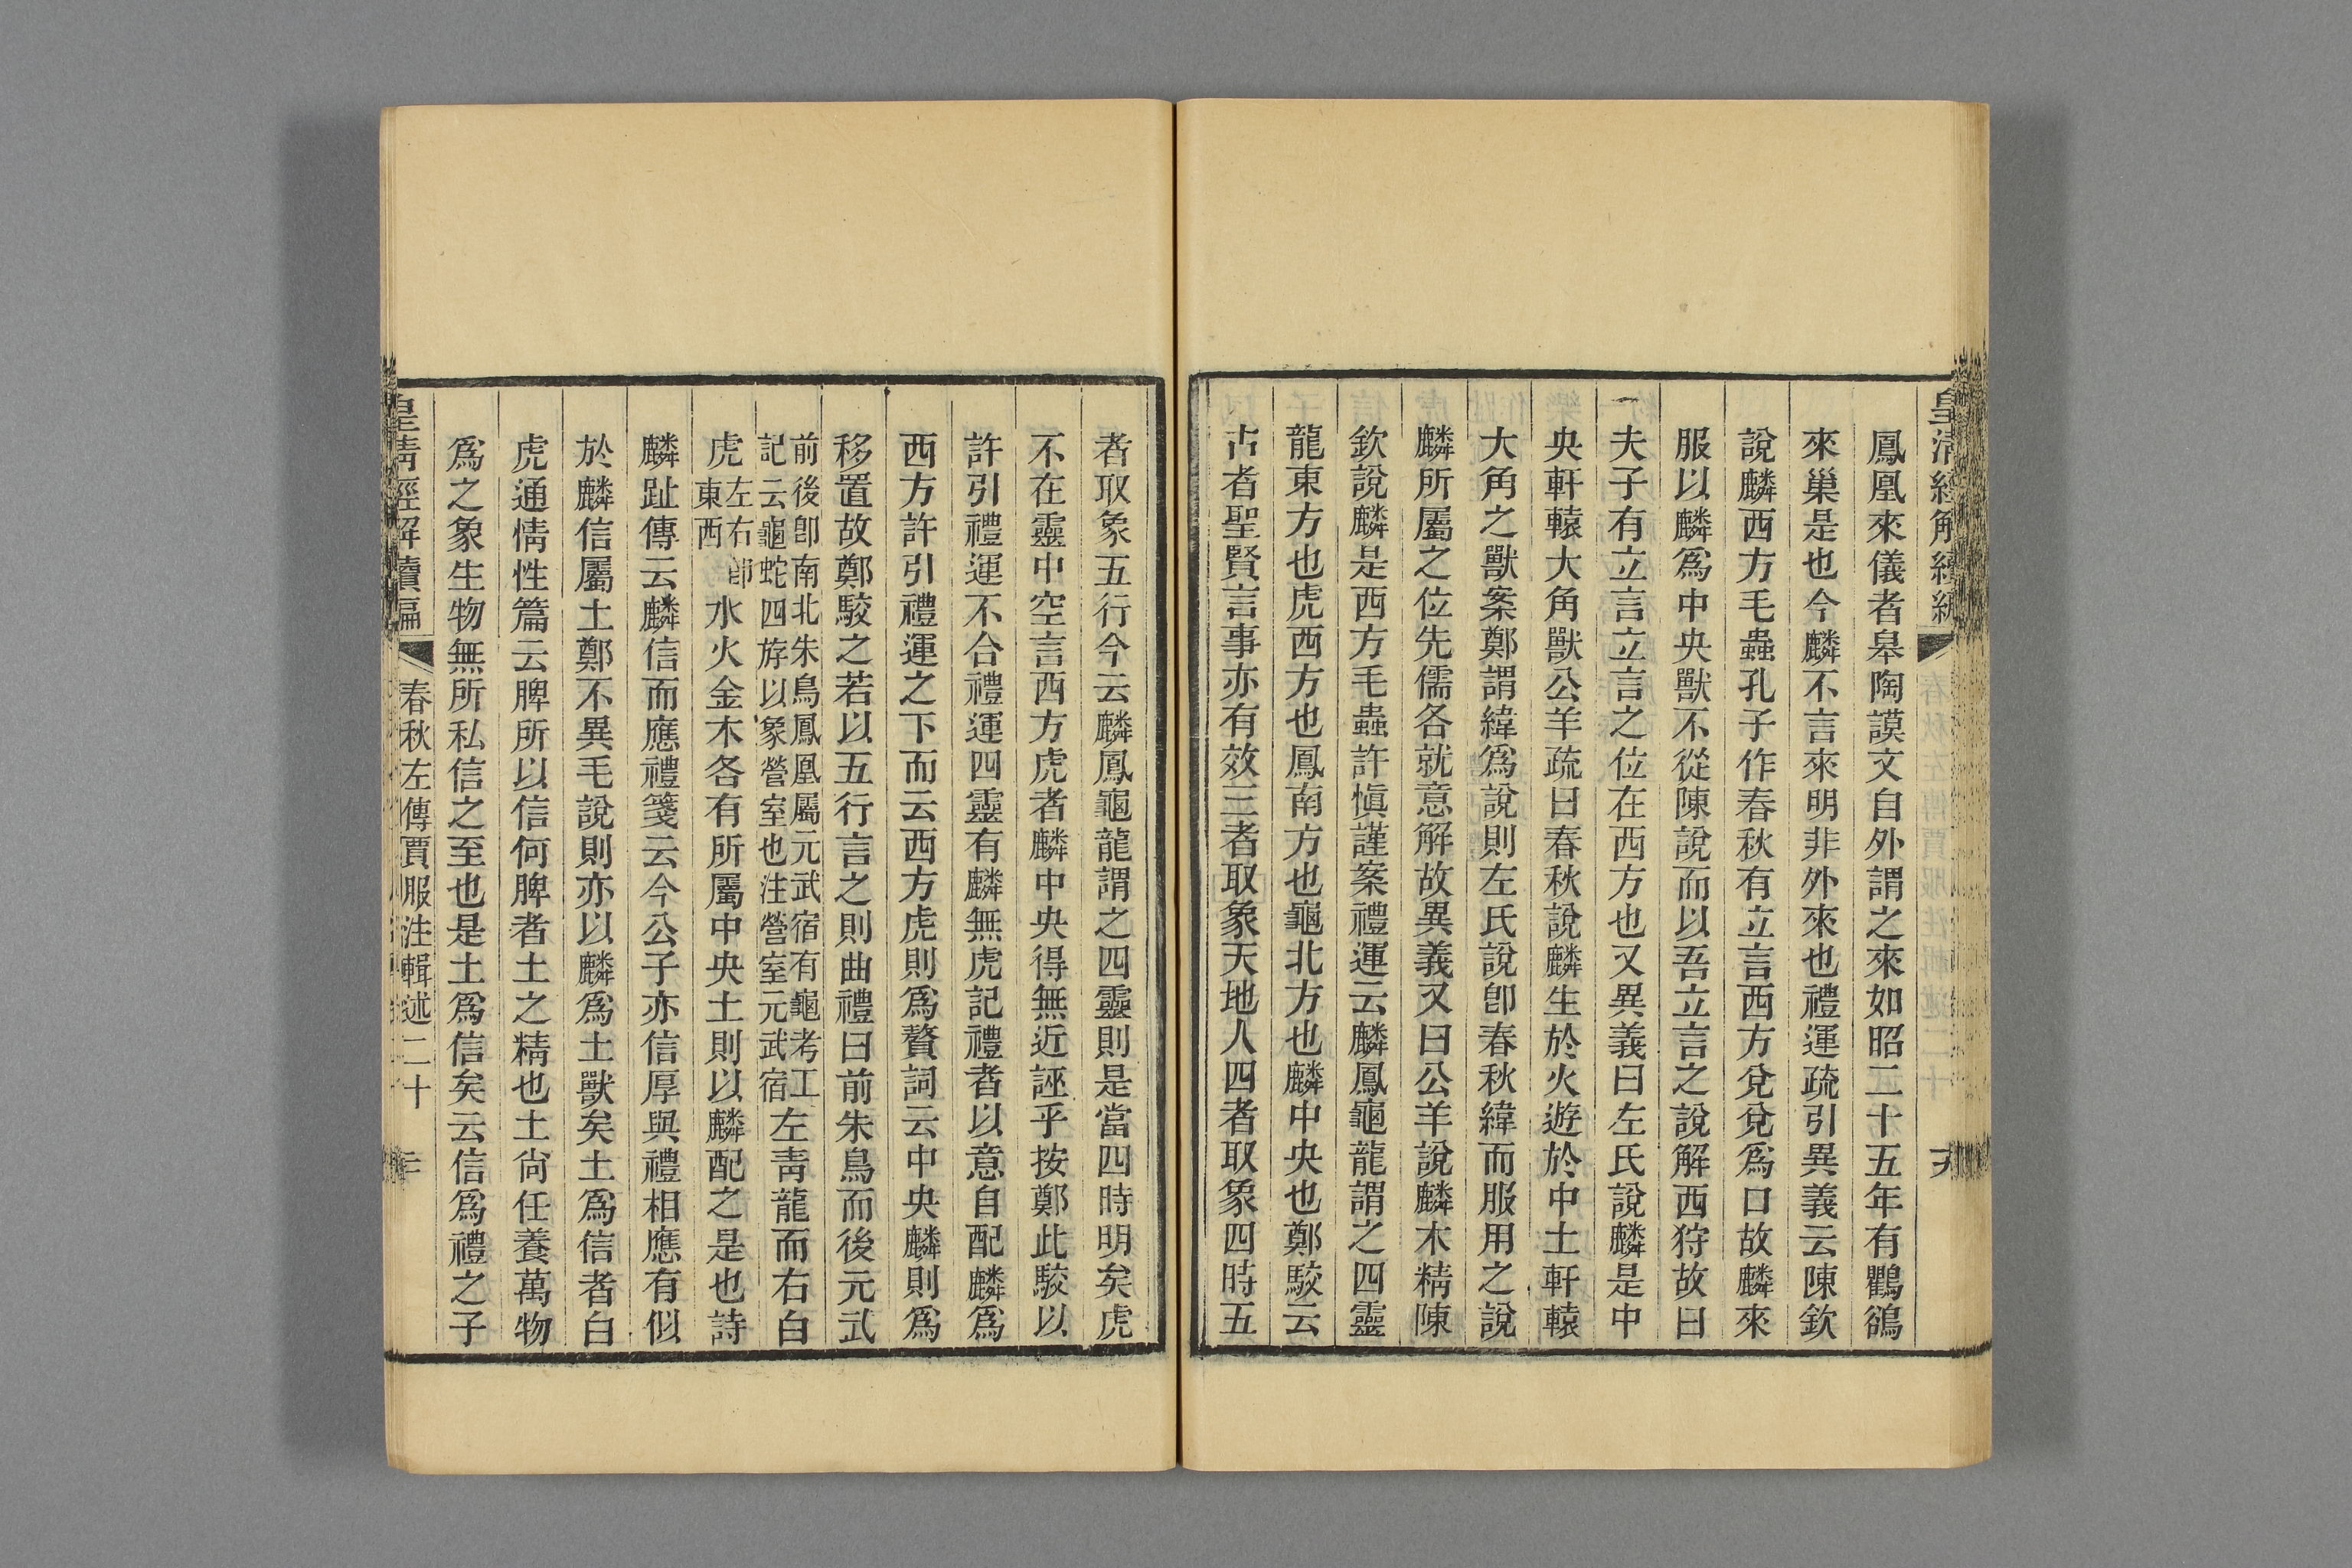 皇清經解續編
鳳凰來儀者皋陶謨文自外謂之來如昭二十五年有鸜鵒
來巢是也今麟不言來明非外來也禮運疏引異義云陳欽
說麟西方毛蟲孔子作春秋有立言西方兌兌爲口故麟來
服以麟爲中央獸不從陳說而以吾立言之說解西狩故曰
夫子有立言立言之位在西方也又異義曰左氏說麟是中
央軒轅大角獸公羊疏曰春秋說麟生於火遊於中土軒轅
大角之獸案鄭謂緯爲說則左氏說卽春秋緯而服用之說
麟所屬之位先儒各就意解故異義又曰公羊說麟木精陳
欽說麟是西方毛蟲許愼謹案禮運云麟鳳龜龍謂之四靈
龍東方也虎西方也鳳南方也龜北方也麟中央也鄭駮云
古者聖賢言事亦有效三者取象天地人四者取象四時五
者取象五行今云麟鳳龜龍謂之四靈則是當四時明矣虎
不在靈中空言西方虎者麟中央得無近誣乎按鄭此駮以
許引禮運不合禮運四靈有麟無虎記禮者以意自配麟爲
西方許引禮運之下而云西方虎則爲贅詞云中央麟則爲
移置故鄭駮之若以五行言之則曲禮曰前朱鳥而後元武
前後卽南北朱鳥鳳凰屬元武宿有龜考工
記云龜蛇四斿以象營室也注營室元武宿
左青龍而右白
虎
左右卽
東西
水火金木各有所屬中央土則以麟配之是也詩
麟趾傳云麟信而應禮箋云今公子亦信厚與禮相應有似
於麟信屬土鄭不異毛說則亦以麟爲土獸矣土爲信者白
虎通情性篇云脾所以信何脾者土之精也土尙任養萬物
爲之象生物無所私信之至也是土爲信矣云信爲禮之子
皇清經解續編
春秋左傳賈服注輯述二十